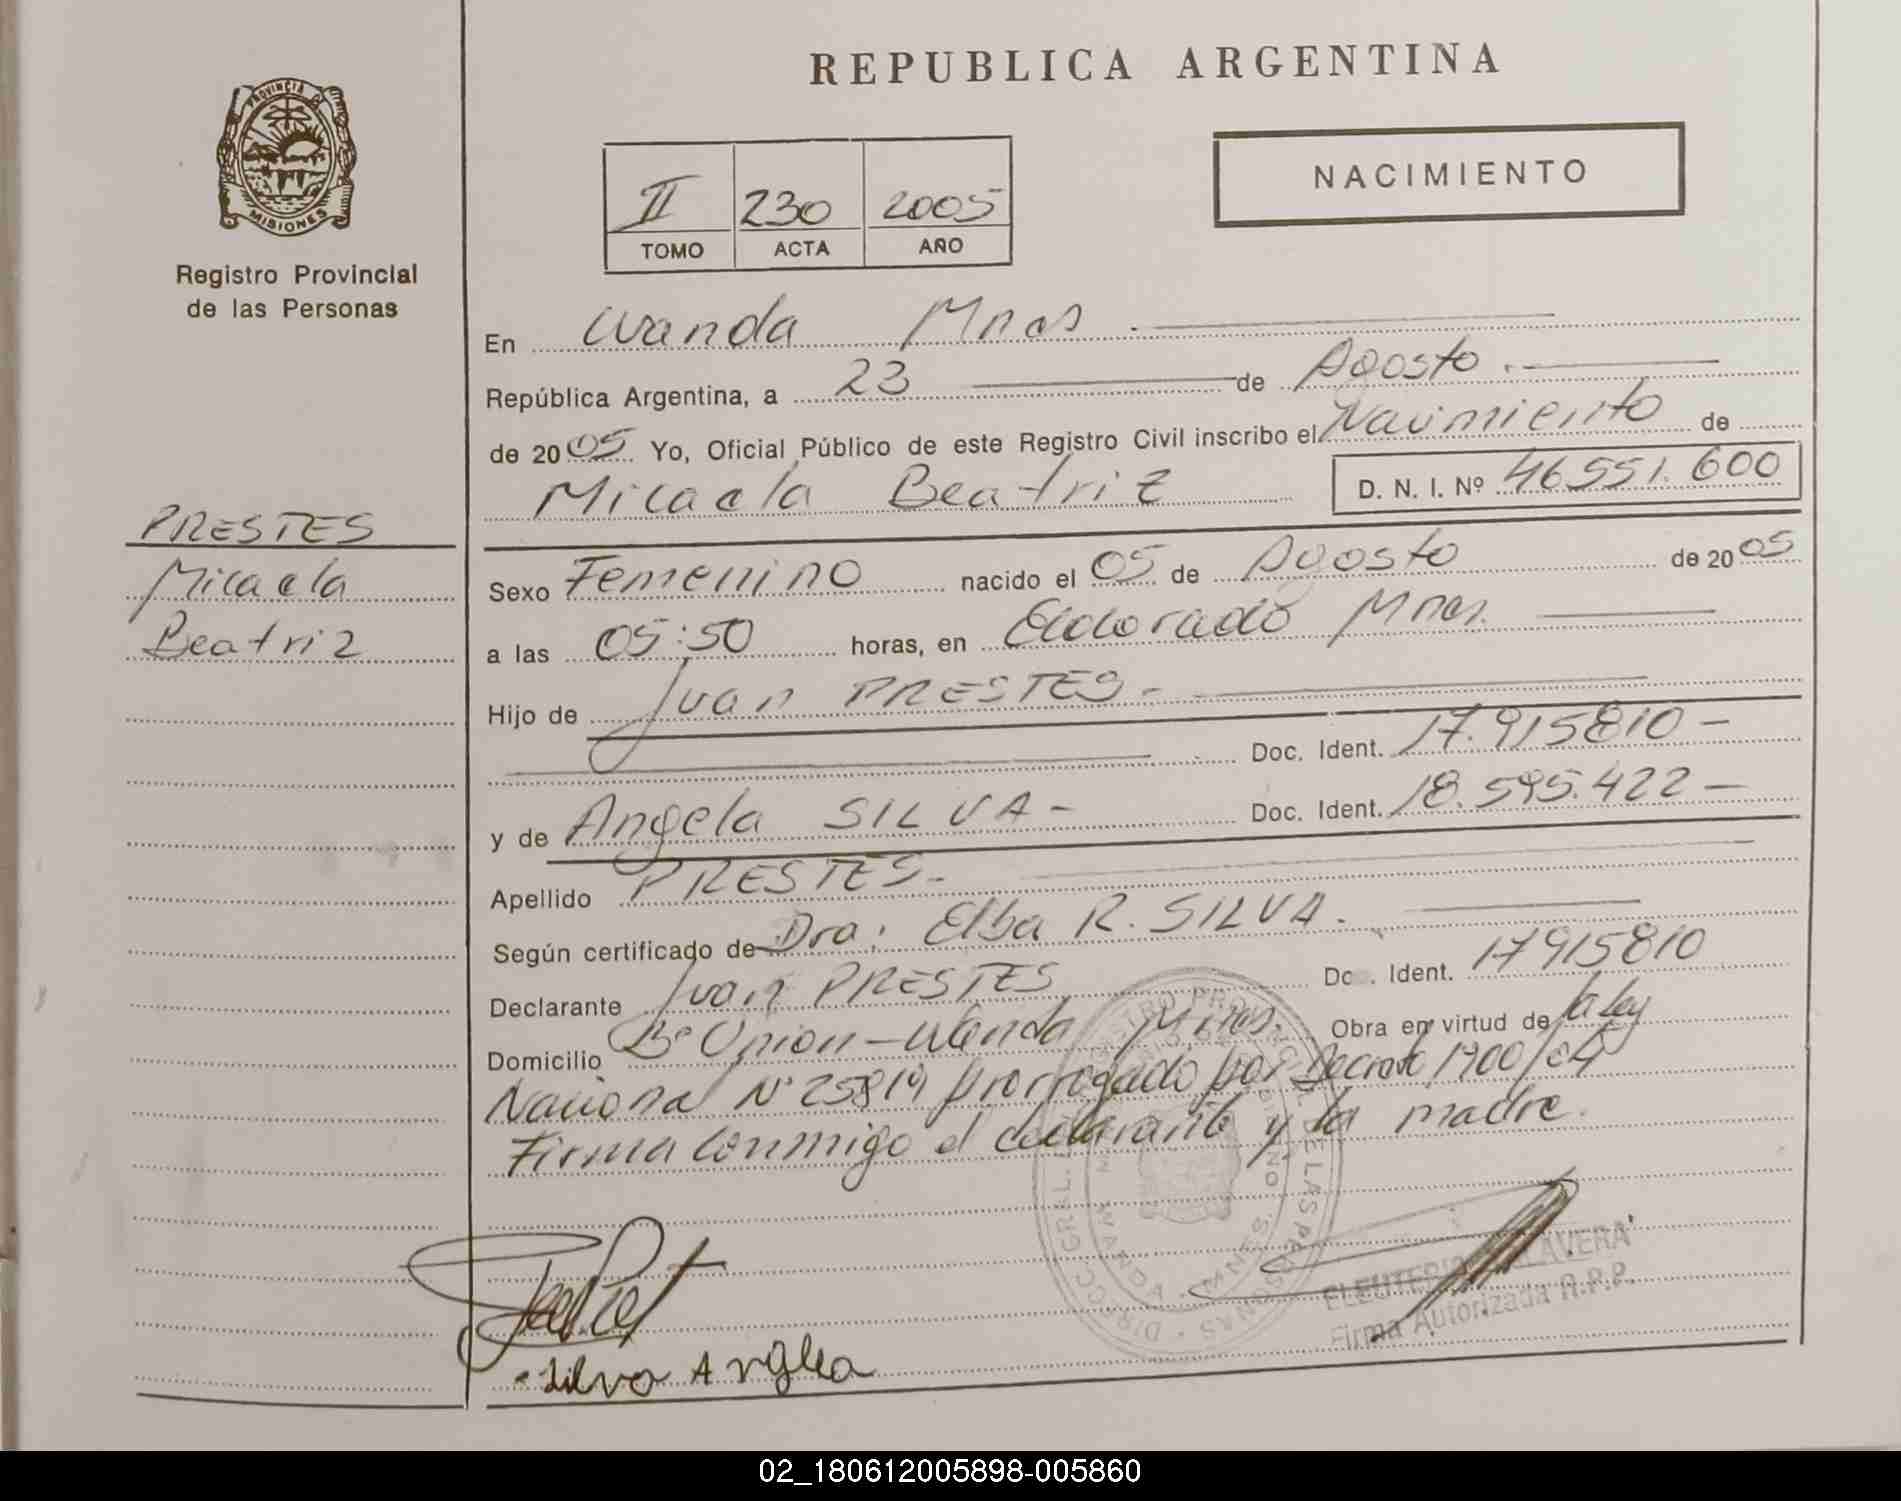 REPUBLICA ARGENTINA
PROVINCIA DE
MISIONES
Registro Provincial
de las Personas
NACIMIENTO
II 230 2005
TOMO ACTA AÑO
En Wanda Mnes.
República Argentina, a 23 de Agosto.
de 2005 Yo, Oficial Público de este Registro Civil inscribo el Nacimiento de
Micaela Beatriz D. N. I. Nº 46551.600
PRESTES
Micaela
Beatriz
Sexo Femenino nacido el 05 de Agosto de 2005
a las 05:50 horas, en Eldorado Mnes.
Hijo de Juan PRESTES-
Doc. Ident. 17.915810-
y de Angela SILVA- Doc. Ident. 18.595.422-
Apellido PRESTES-
Según certificado de Dra. Elba R. SILVA.
Declarante Juan PRESTES Doc. Ident. 17915810
Domicilio Bº Union-Wanda Mnes. Obra en virtud de la ley
Nacional Nº 25819 prorrogado por Decreto 1700/04
Firma conmigo el declarante y la madre.
Silva Anglea
ELEUTERIO TALAVERA
Firma Autorizada R.P.P.
02_180612005898-005860